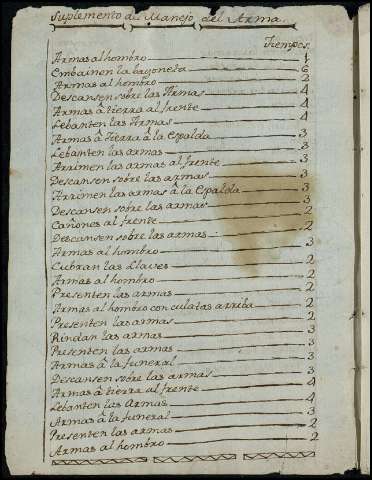 Suplemento del Manejo del Arma.
Tiempos.
Armas al hombro 1
Enbainen la bayoneta 6
Armas al hombro 2
Descansen sobre las Armas 4
Armas â tierra al frente 4
Lebanten las Armas 4
Armas â Tierra â la espalda 3
Lebanten las armas 3
Arrimen las armas al frente 3
Descansen sobre las armas 3
Arrimen las armas â la Espalda 3
Descansen sobre las armas 2
Cañones al frente 2
Descansen sobre las armas 2
Armas al hombro 3
Cubran las Llaves 2
Armas al hombro 2
Presenten las armas 2
Armas al hombro con culatas arriba 2
Presenten las armas 2
Rindan las armas 3
Presenten las armas 3
Armas â la funeral 3
Descansen sobre las armas 3
Armas â tierra al frente 4
Lebanten las Armas 4
Armas â la funeral 3
Presenten las armas 2
Armas al hombro 2